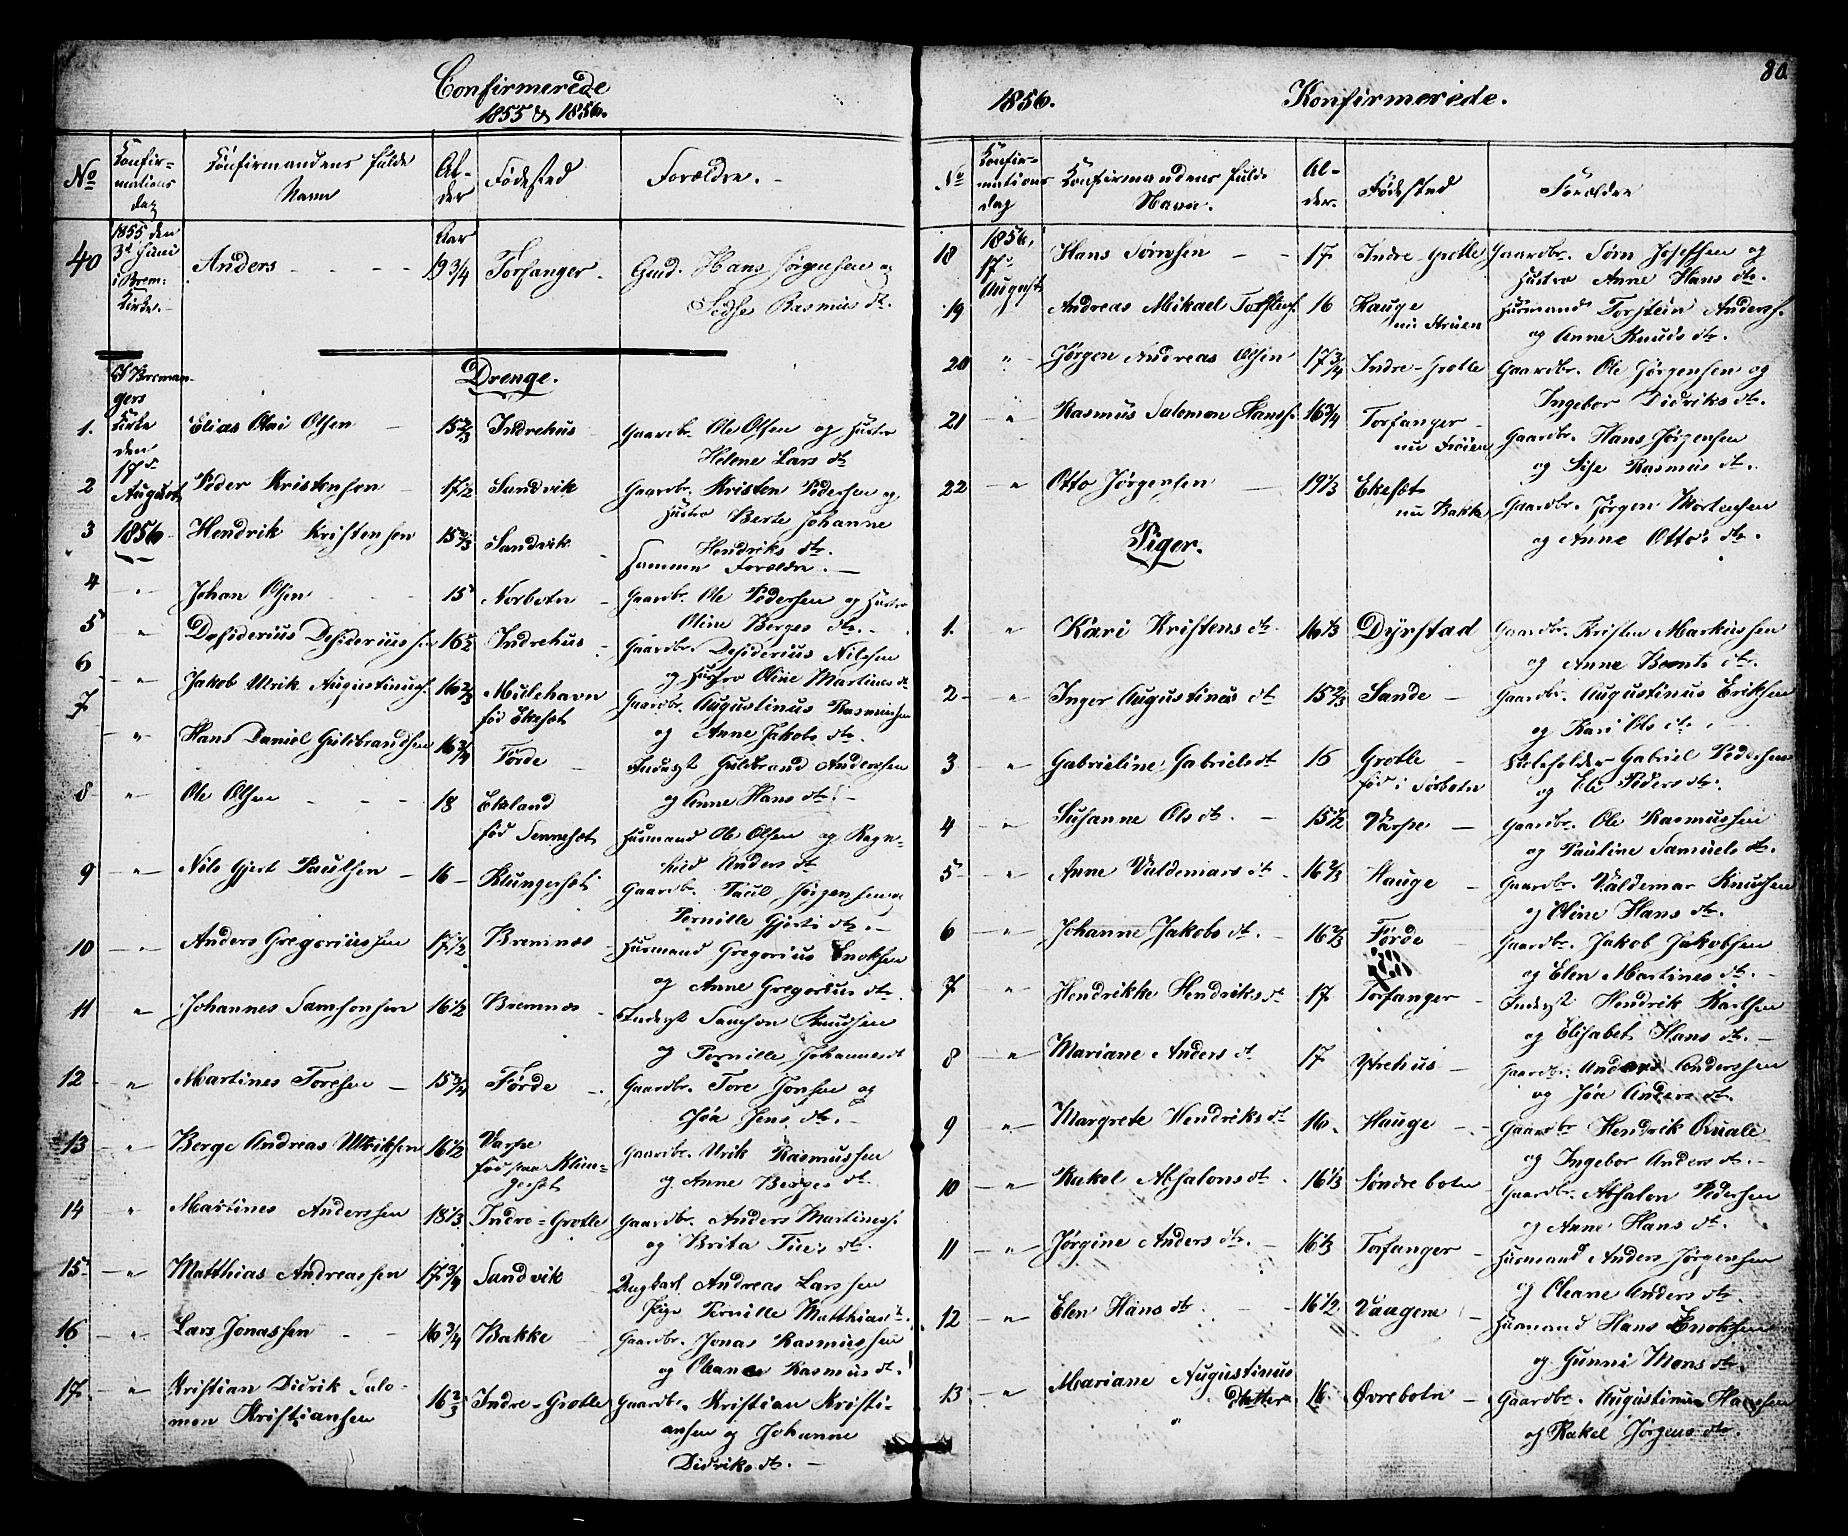 Confirmerede
1855 & 1856.
No
Konfir=
mations
dag
Konfirmandens fulde
Navn
Al-
der
Fødested
Forældre. -
40
1855 den
3d Juni
i Brem:
Kirke. -
Anders - - - -
Aar
19 3/4
Torfanger -
Gmd. Hans Jørgensen og
Sidse Rasmus dtr.
I Breman-
gers
Kirke
den
17de
August
1856
Drenge.
1. Elias Olai Olsen - 15 2/3 Indrehus Gaardbr. Ole Olsen og Hustro
Helene Lars dtr
2 Peder Kristensen - 17 1/2 Sandvik Gaardbr. Kristen Pedersen og
Hustro Berte Johanne
Hendriks dtr.
3 Hendrik Kristensen 15 2/3 Sandvik - Samme Forældre. -
4 - " - Johan Olsen 15 Norbotn - Gaardbr. Ole Pedersen og Hustro
Oline Berges dtr. -
5 " Desiderius Desideriussen 16 1/2 Indrehus - Gaardbr. Desiderius Nilssen
og Hustro Oline Martines dtr
6 " Jakob Ulrik Augustinuss. 16 2/3 Mulehavn
fød Ekeset Gaardbr. Augustinus Rasmussen
og Anne Jakobs dtr.
7 - " Hans Daniel Guldbrandsen 16 3/4 Førde - Inderst Guldbrand Anderssen
og Anne Hans dtr. -
8 - " - Ole Olsen - - - 18 Ekeland
fød Sennesæt Husmand Ole Olsen og Ragn-
hild Anders dtr
9 - " - Nils Gjert Paulsen - 16 - Klungeset Gaardbr. Paul Jørgensen og
Pernille Gjerts dtr. -
10 - " Anders Gregoriussen 17 1/2 Bremnes - Husmand Gregorius Enoksen
og Anne Gregorius dtr.
11 " Johannes Samsonsen 16 1/2 Bremnes - Inderst Samson Knudsen
og Pernille Johannes dt
12 - " Martines Toresen - 15 3/4 Førde - Gaardbr. Tore Jonsen og
Jøa Jens dtr. -
13 - " - Berge Andreas Ulriksen 16 1/2 Varpe
fød paa Klun-
geset Gaardbr. Ulrik Rasmussen
og Anne Berges dt.
14 " Martines Anderssen 18 1/3 Indre-Grotle Gaardbr. Anders Martiness.
og Brita dt.
15 - " Matthias Andreassen 17 3/4 Sandvik Ungkarl Andreas Larssen
Pige Pernille Matthias dt.
16 - " - Lars Jonassen - - 16 3/4 Bakke - Gaardbr. Jonas Rasmussen
og Oleane Rasmus dt.
17. - " Kristian Didrik Salo-
mon Kristiansen 16 2/3 Indre-Grotle Gaardbr. Kristian Kristi-
ansen og Johanne
Didriks dt. -
80.
1856. Konfirmerede.
No
Konfir=
mations
dag
Konfirmandens fulde
Navn.
Al-
der.
Fødested
Forældre
1856,
17de
August
18 Hans Sørensen - - 17 Indre-Grotle Gaardbr. Søren Josefsen og
Hustro Anne Hans dtr.
19 " Andreas Mikael Torstens. 16 Hauge
nu Struen Husmand Torstein Anderss.
og Anne Knuds dtr.
20 " Jørgen Andreas Olsen 17 3/4 Indre-Grotle Gaardbr. Ole Jørgensen og
Ingebor Didriks dt.
21 " Rasmus Salomon Hanss. 16 3/4 Torfanger -
nu Frøien Gaardbr. Hans Jørgensen
og Sise Rasmus dt.
22 - " Otto Jørgensen - 19 1/3 Ekeset
nu Bakke Gaardbr. Jørgen Mortensen
og Anne Otto's dtr.
Piger.
1. " Kari Kristens dt. 16 1/3 Dyrstad Gaardbr. Kristen Markussen
og Anne Bents dtr.
2 - " Inger Augustinus dt 15 2/3 Sande - Gaardbr. Augustinus Eriksen
og Kari Ols dtr.
3 - " Gabrieline Gabriels dt 15 Grotle -
fød i Sørbotn Skoleholder Gabriel Pedersen
og Eli Peders dtr.
4 - " - Susanne Ols dt. - 15 1/2 Varpe - Gaardbr. Ole Rasmussen
og Pauline Samuels dt.
5 - " Anne Valdemars dt - 16 2/3 Hauge - Gaardbr. Valdemar Knudsen
og Oline Hans dt.
6 - " - Johanne Jakobs dt. - 16 2/3 Førde - Gaardbr. Jakob Jakobsen
og Elen Martines dt. -
7 - " Hendrikke Hendriks dt 17 Torfanger - Inderst Hendrik Karlsen
og Elisabet Hans dt. -
8 - " Mariane Anders dt 17 Ytrehus - Gaardbr. Anders Anderssen
og Jøa Anders dt.
9 - " Margrete Hendriks dt 16. Hauge - Gaardbr Hendrik Qvale
og Ingebor Anders dt. -
10 - " Rakel Absalons dt. 16 1/3 Søndre botn - Gaardbr. Absalon Pedersen
og Anne Hans dt.
11 - " Jørgine Anders dtr. - 16 1/3 Torfanger - Husmand Anders Jørgensen
og Oleane Anders dtr.
12 - " Elen Hans dtr - - 16 1/2 Vaagene - Husmand Hans Enoksen
og Gunni Mons dtr.
13 - " Mariane Augustinus
Datter 16 Øvrebotn - Gaardbr. Augustinus Hanssen
og Rakel Jørgens dtr.